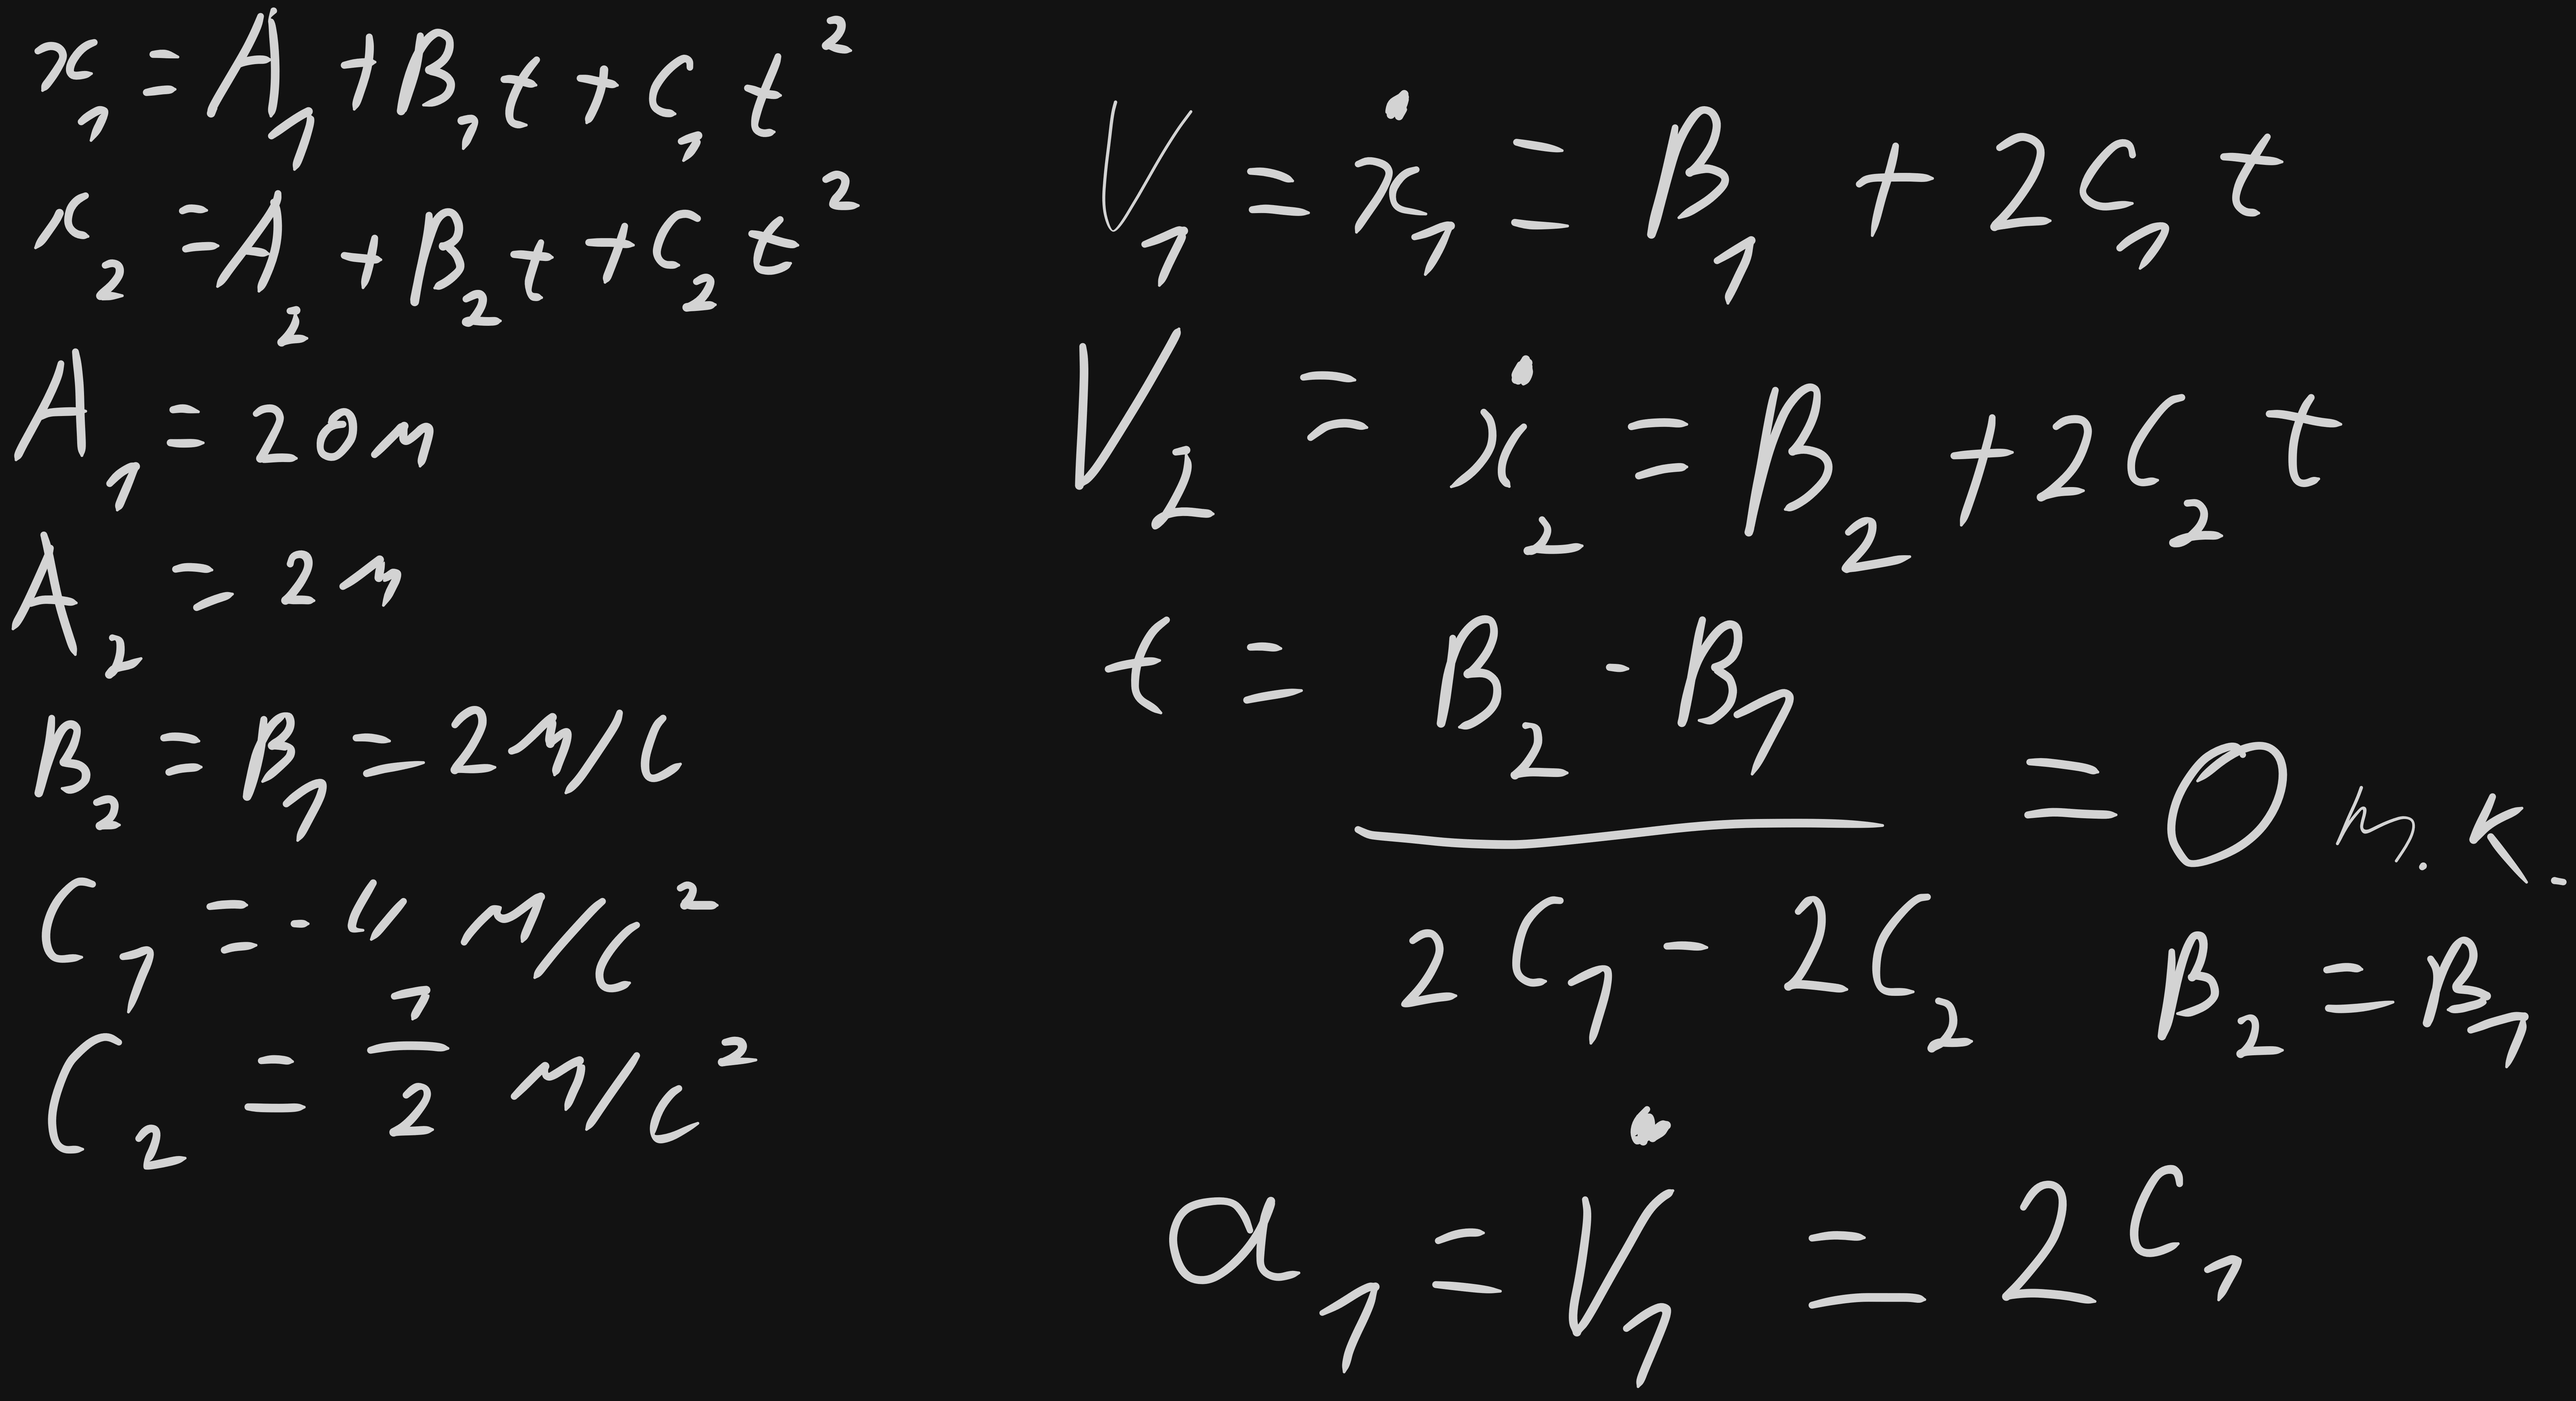 x₁ = A₁ + B₁t + C₁t²
x₂ = A₂ + B₂t + C₂t²
A₁ = 20м
A₂ = 2м
B₂ = B₁ = 2м/с
C₁ = -4 м/с²
C₂ = 1/2 м/с²
V₁ = ẋ₁ = B₁ + 2C₁t
V₂ = ẋ₂ = B₂ + 2C₂t
t = (B₂ - B₁)/(2C₁ - 2C₂) = 0 т.к.
B₂ = B₁
a₁ = V̇₁ = 2C₁